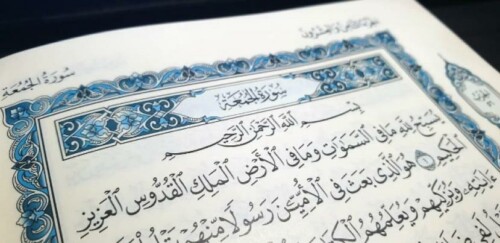 سُورَةُ الجُمُعَةِ
سُورَةُ الجُمُعَةِ
بِسْمِ اللَّهِ الرَّحْمَٰنِ الرَّحِيمِ
يُسَبِّحُ لِلَّهِ مَا فِي السَّمَٰوَٰتِ وَمَا فِي الْأَرْضِ الْمَلِكِ الْقُدُّوسِ الْعَزِيزِ
الْحَكِيمِ ١ هُوَ الَّذِي بَعَثَ فِي الْأُمِّيِّينَ رَسُولًا مِّنْهُمْ
وَيُزَكِّيهِمْ وَيُعَلِّمُهُمُ